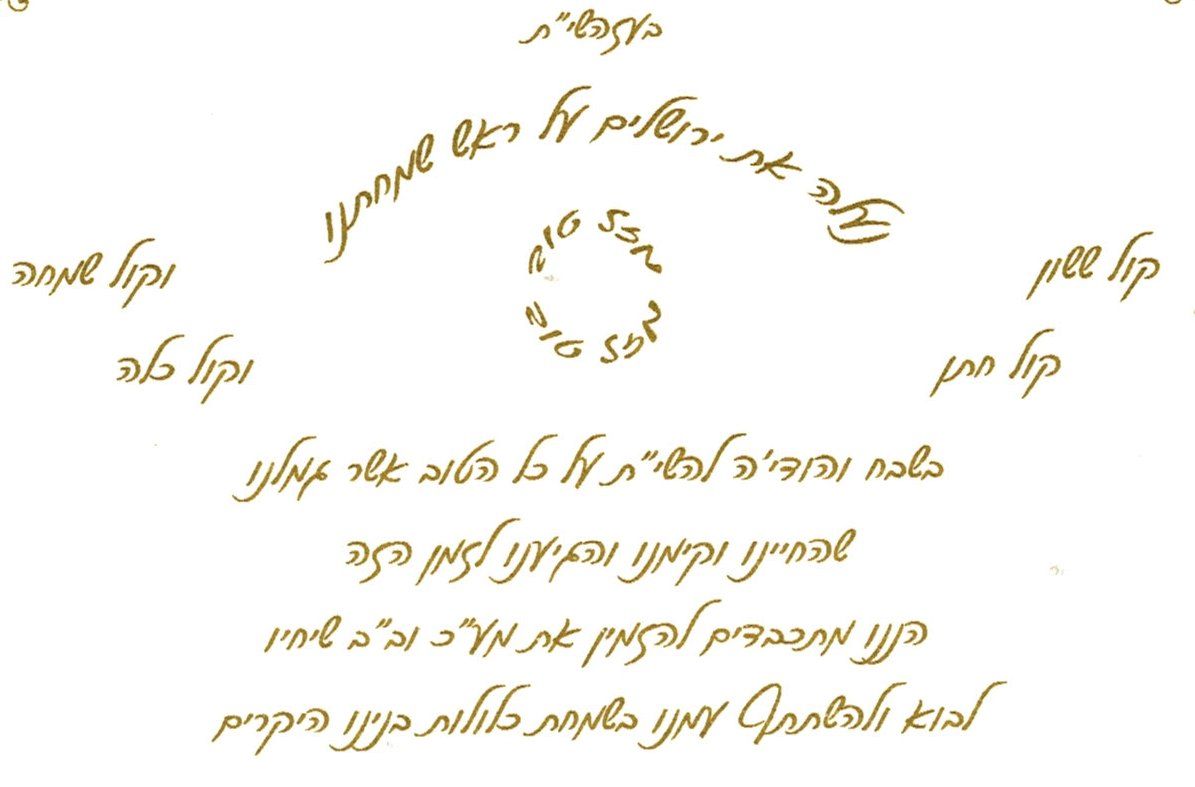 בעזהשי"ת
נעלה את ירושלים על ראש שמחתנו
מזל טוב
מזל טוב
קול ששון וקול שמחה
קול חתן וקול כלה
בשבח והודי'ה להשי"ת על כל הטוב אשר גמלנו
שהחיינו וקימנו והגיענו לזמן הזה
הננו מתכבדים להזמין את מע"כ וב"ב שיחיו
לבוא ולהשתתף עמנו בשמחת כלולות בנינו היקרים